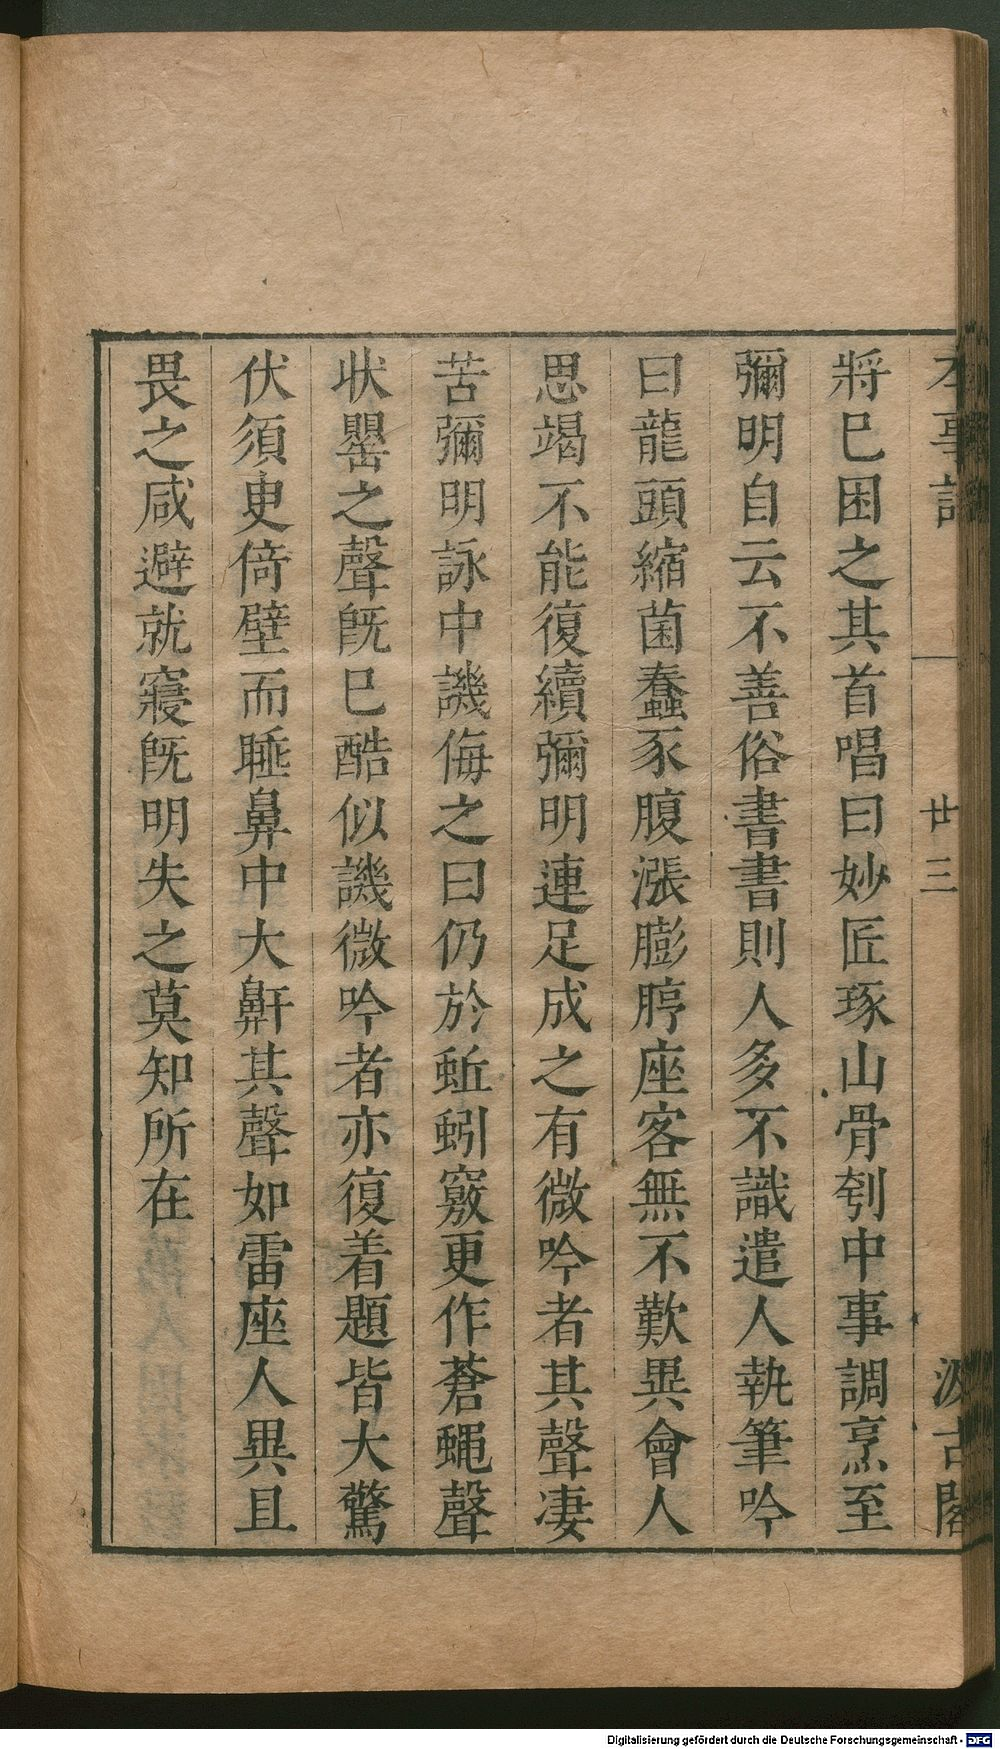 本事詩 廿三 汲古閣
將巳困之其首唱曰妙匠琢山骨刳中事調烹至
彌明自云不善俗書書則人多不識遣人執筆吟
曰龍頭縮菌蠢豕腹漲膨脝座客無不歎異會人
思竭不能復續彌明連足成之有微吟者其聲凄
苦彌明詠中譏侮之曰仍於蚯蚓竅更作蒼蠅聲
狀罌之聲旣巳酷似譏微吟者亦復着題皆大驚
伏須臾倚壁而睡鼻中大鼾其聲如雷座人異且
畏之咸避就寢旣明失之莫知所在
Digitalisierung gefördert durch die Deutsche Forschungsgemeinschaft - DFG